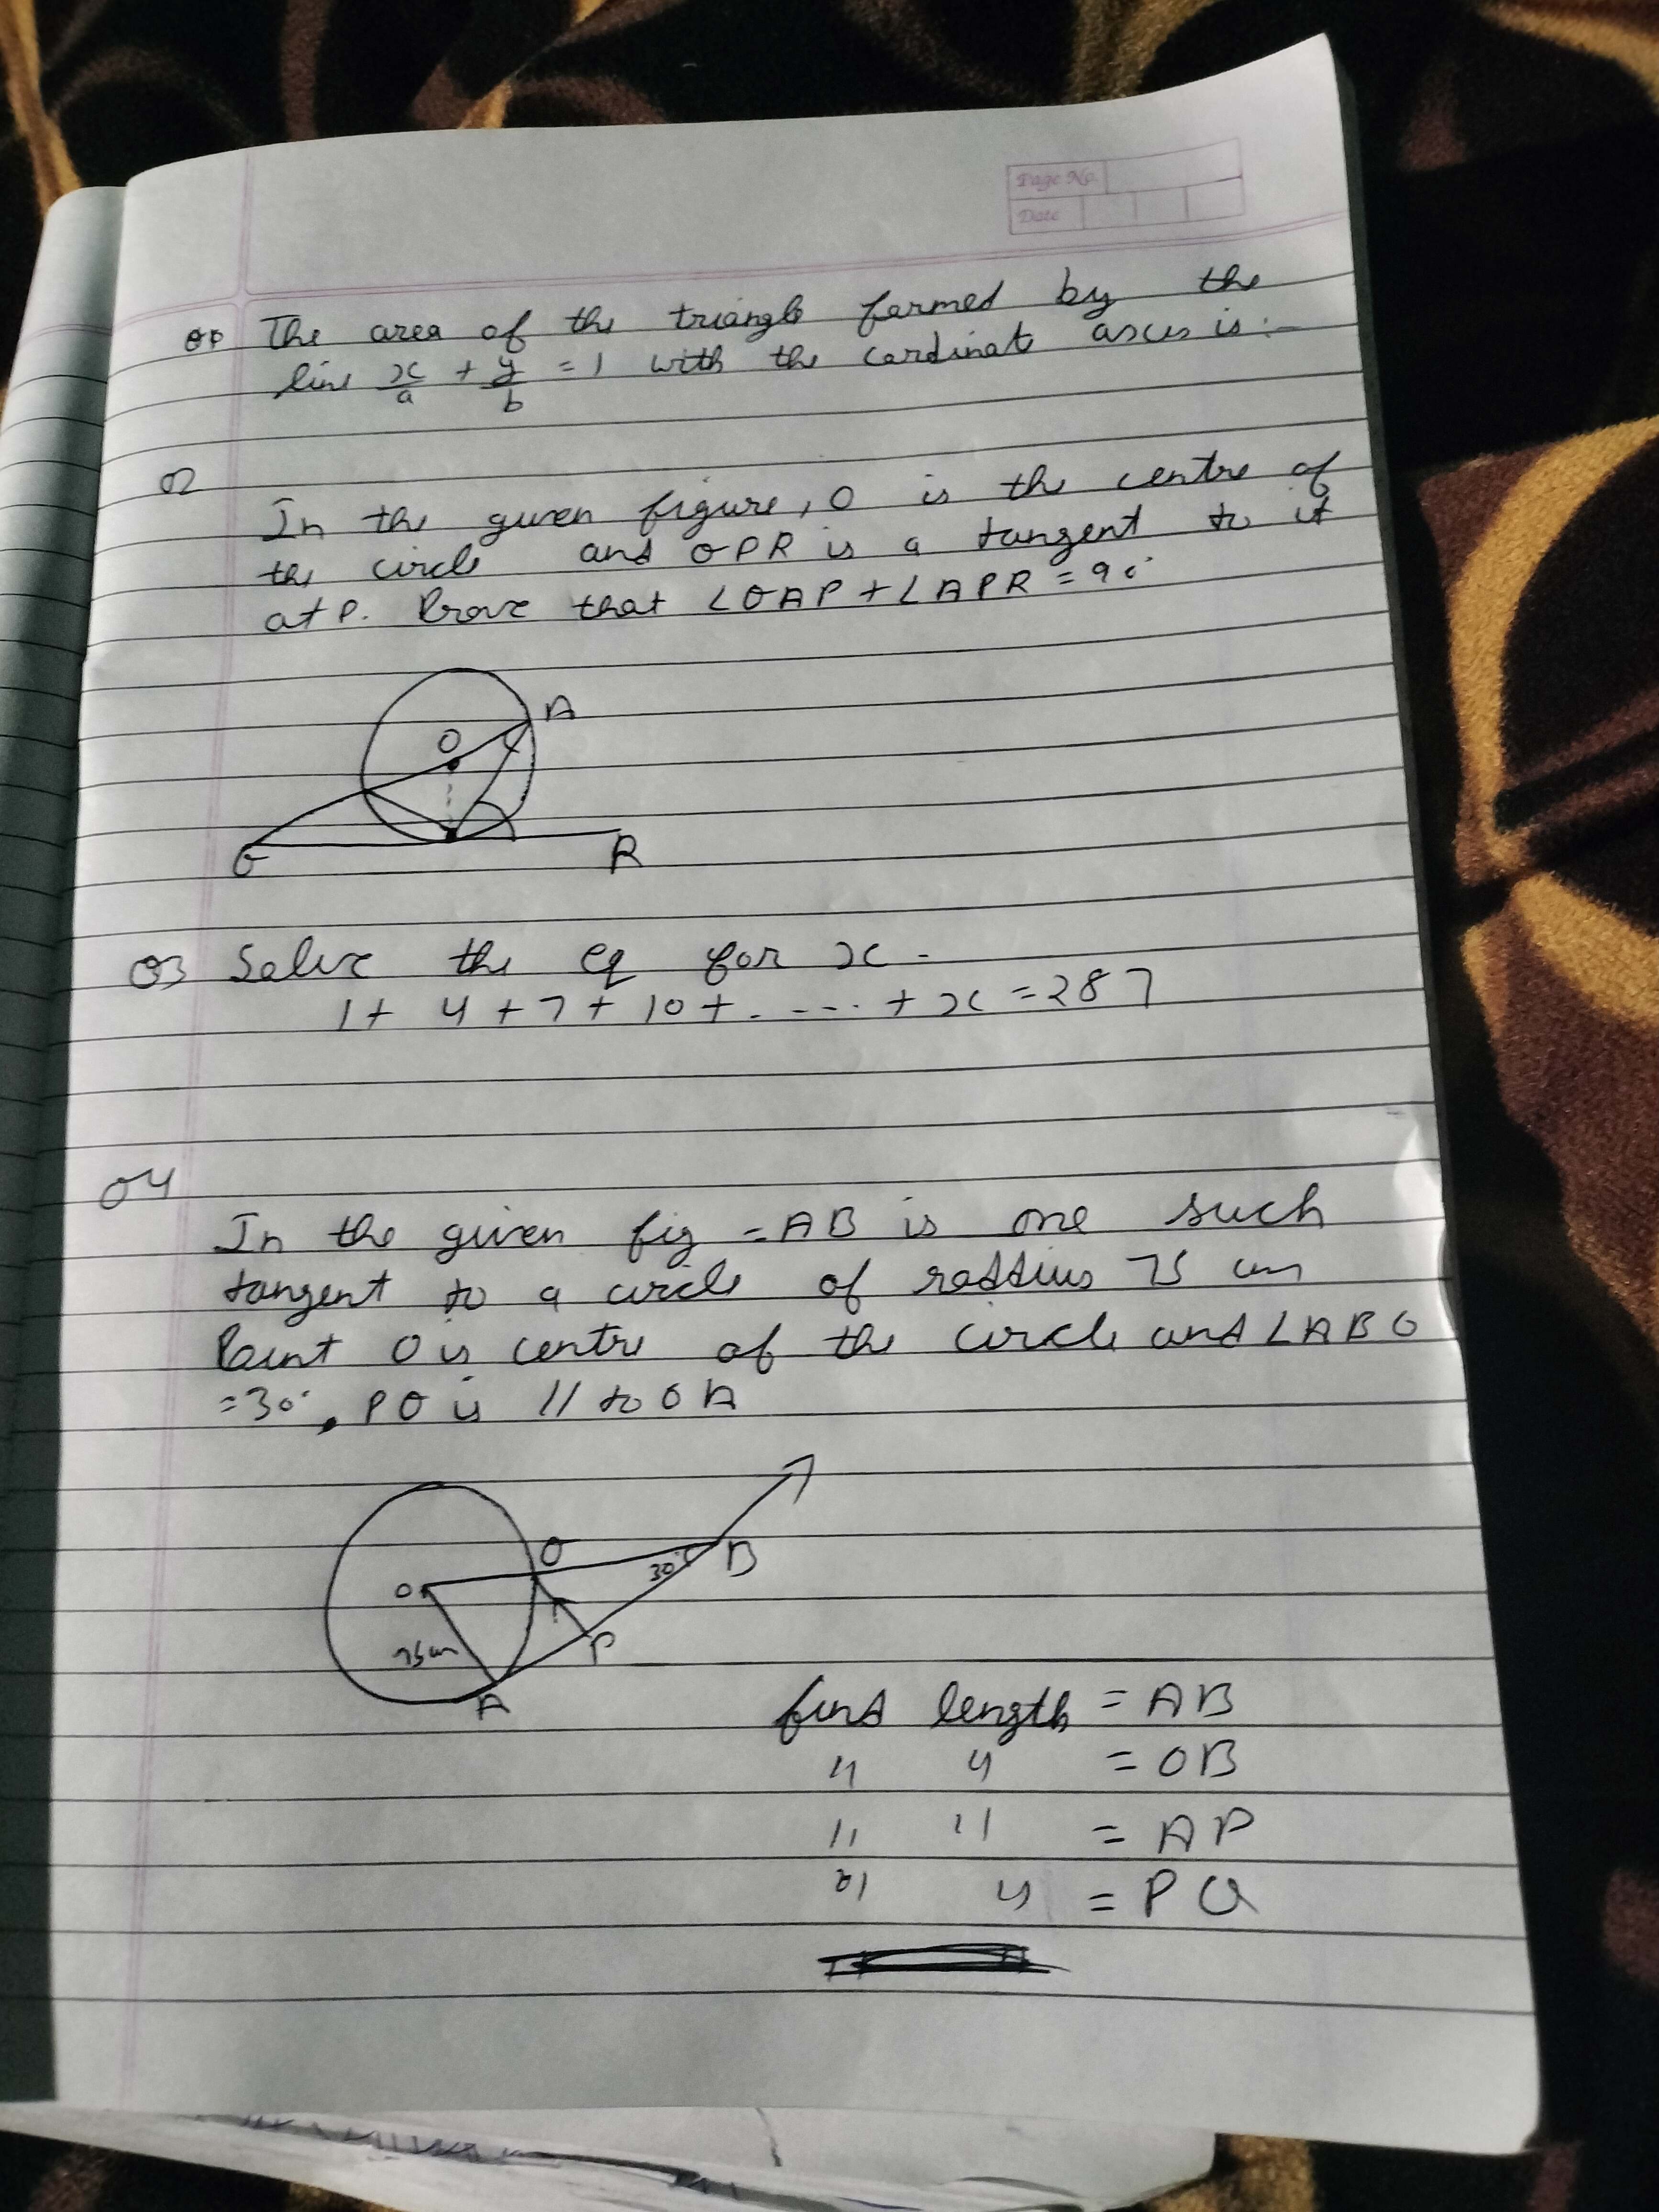 Page No.
Date
Q1 The area of the triangle formed by the
line x/a + y/b = 1 with the cordinate axes is :-
Q2
In the given figure, O is the centre of
the circle and QPR is a tangent to it
at P. Prove that ∠OAP + ∠APR = 90°
A
O
Q
R
Q3 Solve the eq for x -
1 + 4 + 7 + 10 + . - - - . + x = 287
Q4
In the given fig - AB is one such
tangent to a circle of raddius 75 cm
Point O is centre of the circle and ∠ABO
= 30°, PQ is // to OA
Q
O
30°
B
75cm
P
A
find length = AB
" " = OB
" " = AP
" " = PQ